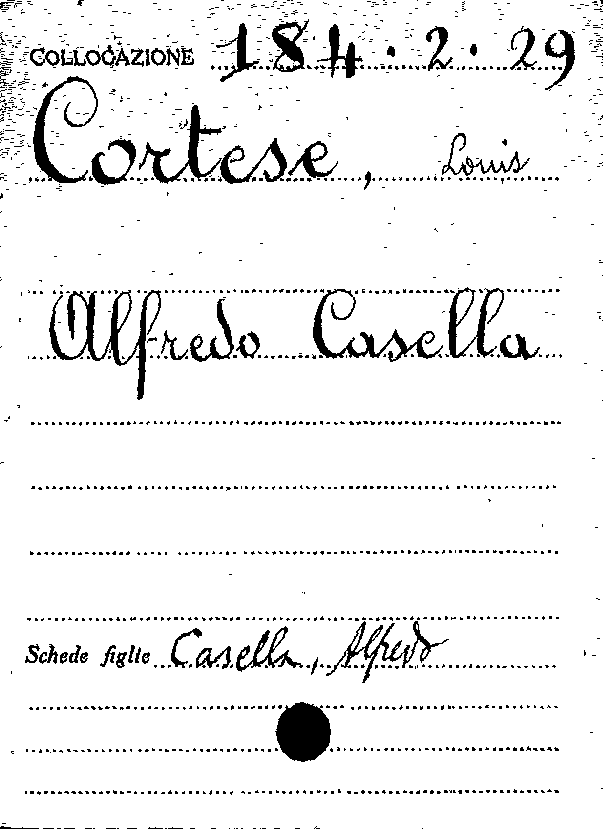 COLLOCAZIONE 184.2.29
Cortese, Louis
Alfredo Casella
Schede figlie Casella, Alfredo